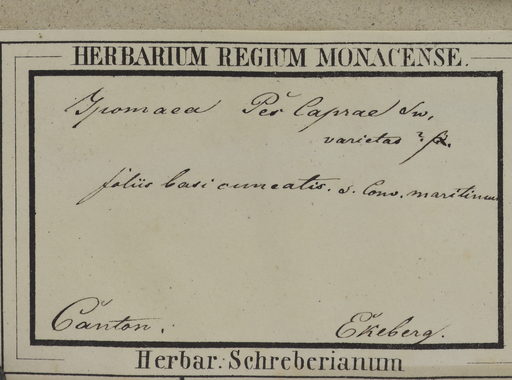 HERBARIUM REGIUM MONACENSE.
Ipomaea Pes Caprae Sw.
varietas ? β.
foliis basi cuneatis. s. Conv. maritimus
Canton. Ekeberg.
Herbar. Schreberianum